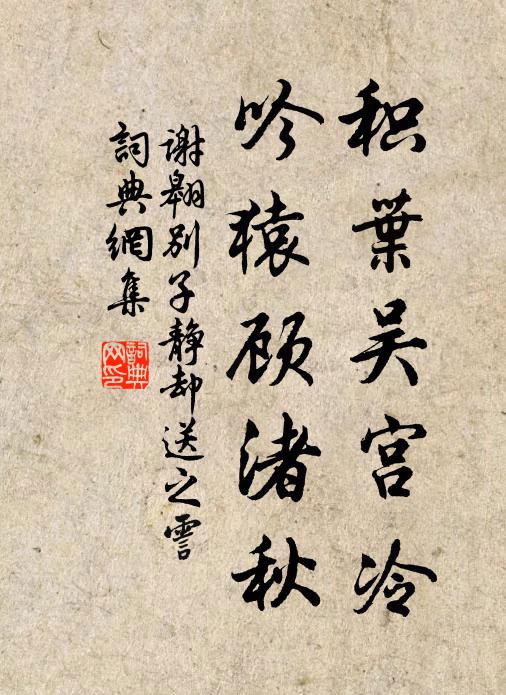 积葉吴宫冷
吟猿顾渚秋
謝翱别子静却送之霅
詞典網集
詞典
网印